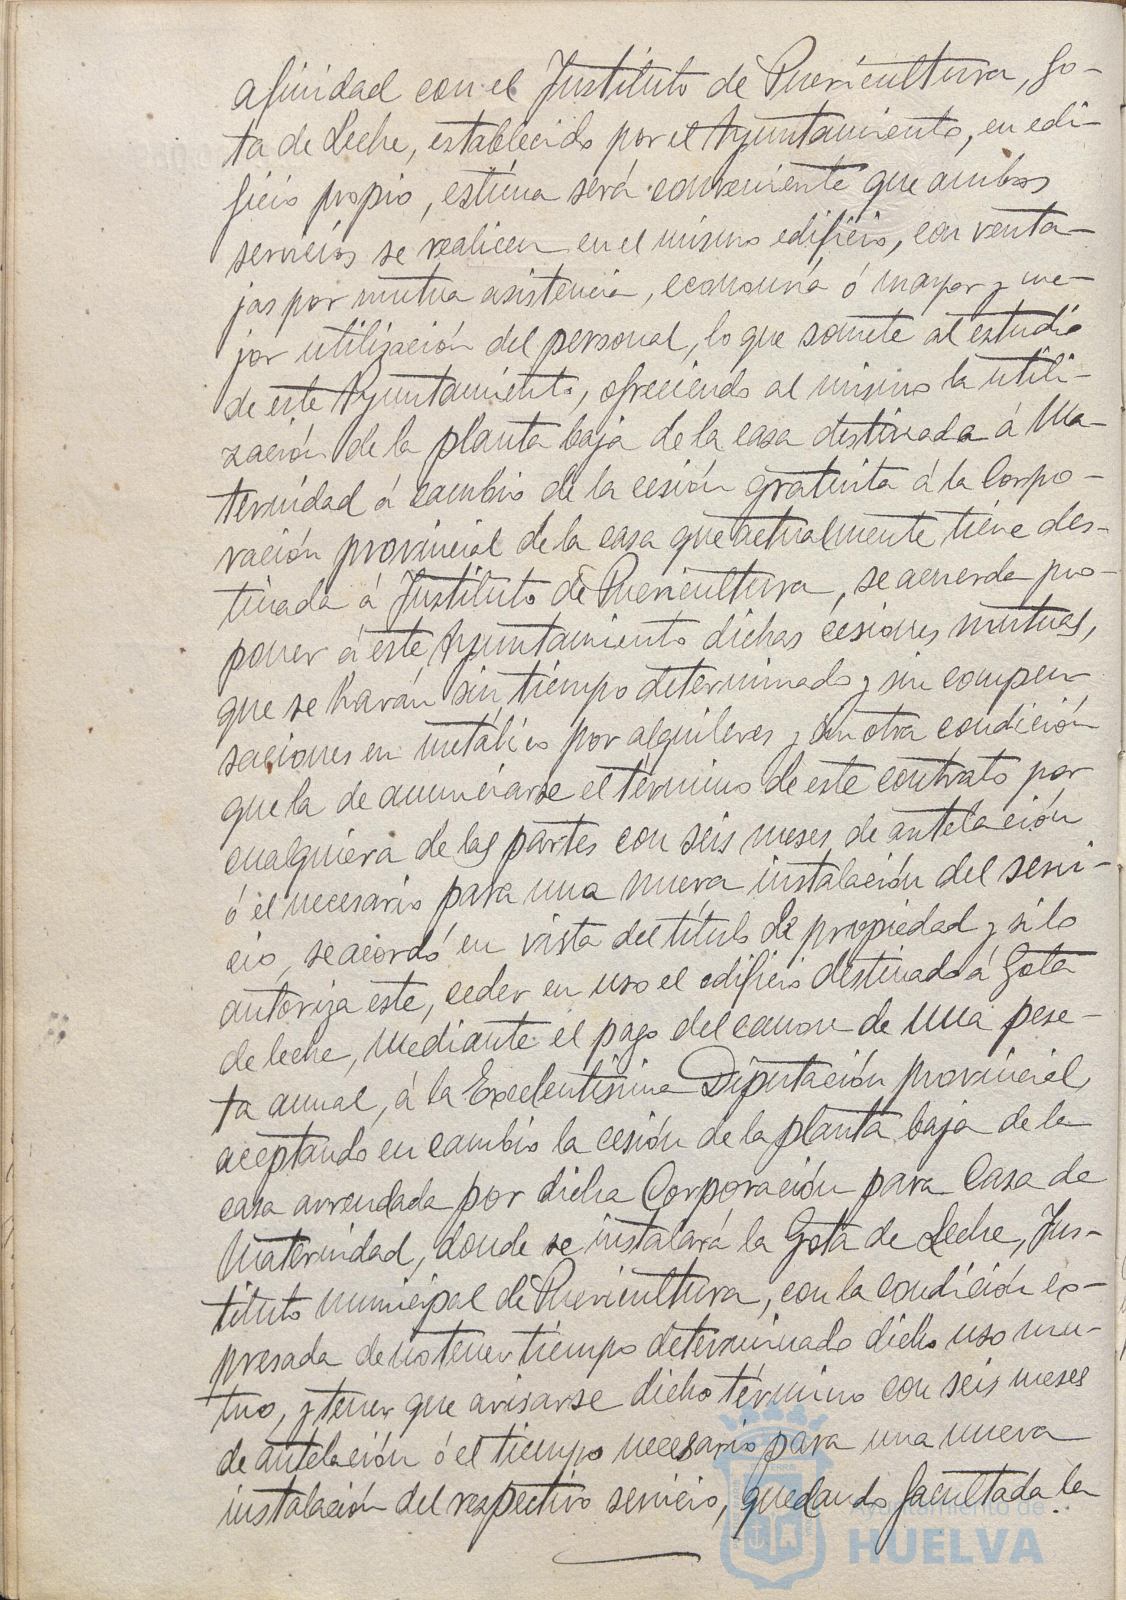 afinidad con el Instituto de Puericultura, Go-
ta de Leche, establecido por el Ayuntamiento, en edi-
ficio propio, estima será conveniente que ambos
servicios se realicen en el mismo edificio, con venta-
jas por mutua asistencia, economía ó mayor y me-
jor utilización del personal, lo que somete al estudio
de este Ayuntamiento, ofreciendo al mismo la utili-
zación de la planta baja de la casa destinada á Ma-
ternidad á cambio de la cesión gratuita á la Corpo-
ración provincial de la casa que actualmente tiene des-
tinada á Instituto de Puericultura, se acuerda pro-
poner á este Ayuntamiento dichas cesiones mutuas,
que se harán sin tiempo determinado y sin compen
saciones en metálico por alquileres y sin otra condición
que la de anunciarse el término de este contrato por
cualquiera de las partes con seis meses de antelación
ó el necesario para una nueva instalación del servi-
cio, se acordó en vista del título de propiedad y si lo
autoriza este, ceder en uso el edificio destinado á Gota
de leche, mediante el pago del canon de una pese-
ta anual, á la Excelentísima Diputación provincial,
aceptando en cambio la cesión de la planta baja de la
casa arrendada por dicha Corporación para Casa de
Maternidad, donde se instalará la Gota de Leche, Ins-
tituto municipal de Puericultura, con la condición ex-
presada de no tener tiempo determinado dicho uso mu-
tuo, y tener que avisarse dicho término con seis meses
de antelación ó el tiempo necesario para una nueva
instalación del respectivo servicio, quedando facultada la
Ayuntamiento de
HUELVA